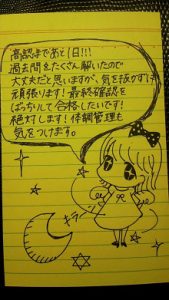 高認まであと1日!!!
過去問をたくさん解いたので
大丈夫だと思いますが、気を抜かずに
頑張ります!最終確認を
ばっちりして合格したいです!
絶対します!体調管理も
気をつけます。
キラーン